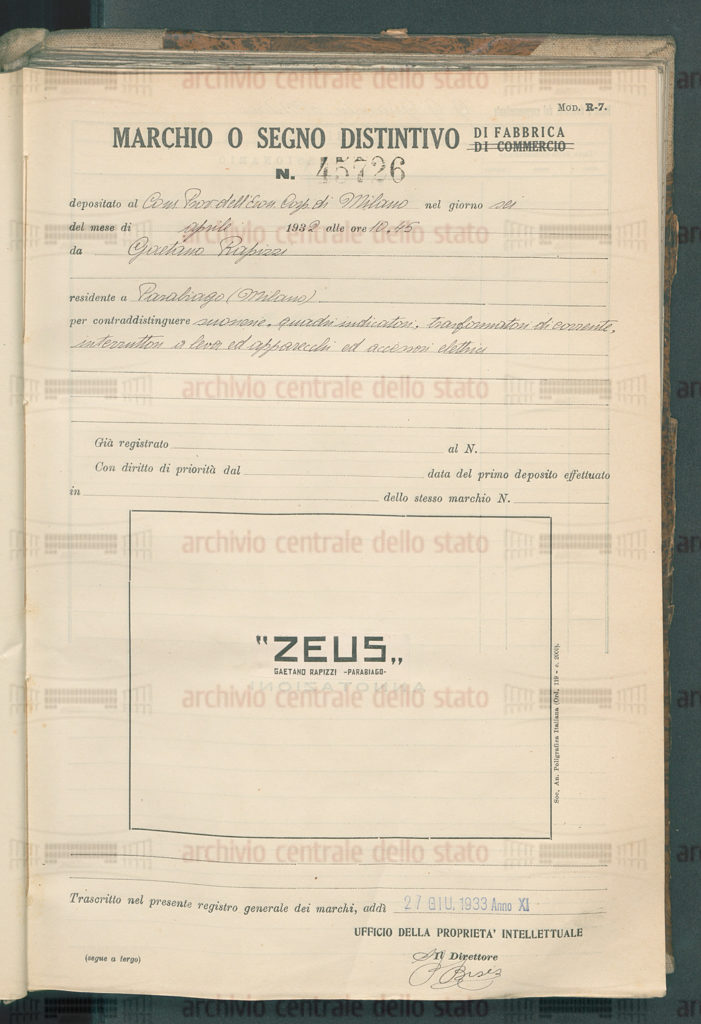 MOD. R-7.
MARCHIO O SEGNO DISTINTIVO DI FABBRICA
DI COMMERCIO
N. 45726
depositato al Cons. Prov. dell'Econ. Corp. di Milano nel giorno sei
del mese di aprile 1932 alle ore 10.45
da Gaetano Rapizzi
residente a Parabiago (Milano)
per contraddistinguere suonerie, quadri indicatori, trasformatori di corrente,
interruttori a leva ed apparecchi ed accessori elettrici
Già registrato al N.
Con diritto di priorità dal data del primo deposito effettuato
in dello stesso marchio N.
"ZEUS„
GAETANO RAPIZZI -PARABIAGO-
Soc. An. Poligrafica Italiana
Trascritto nel presente registro generale dei marchi, addì 27 GIU. 1933 Anno XI
UFFICIO DELLA PROPRIETA' INTELLETTUALE
(segue a tergo)
Il Direttore
archivio centrale dello stato